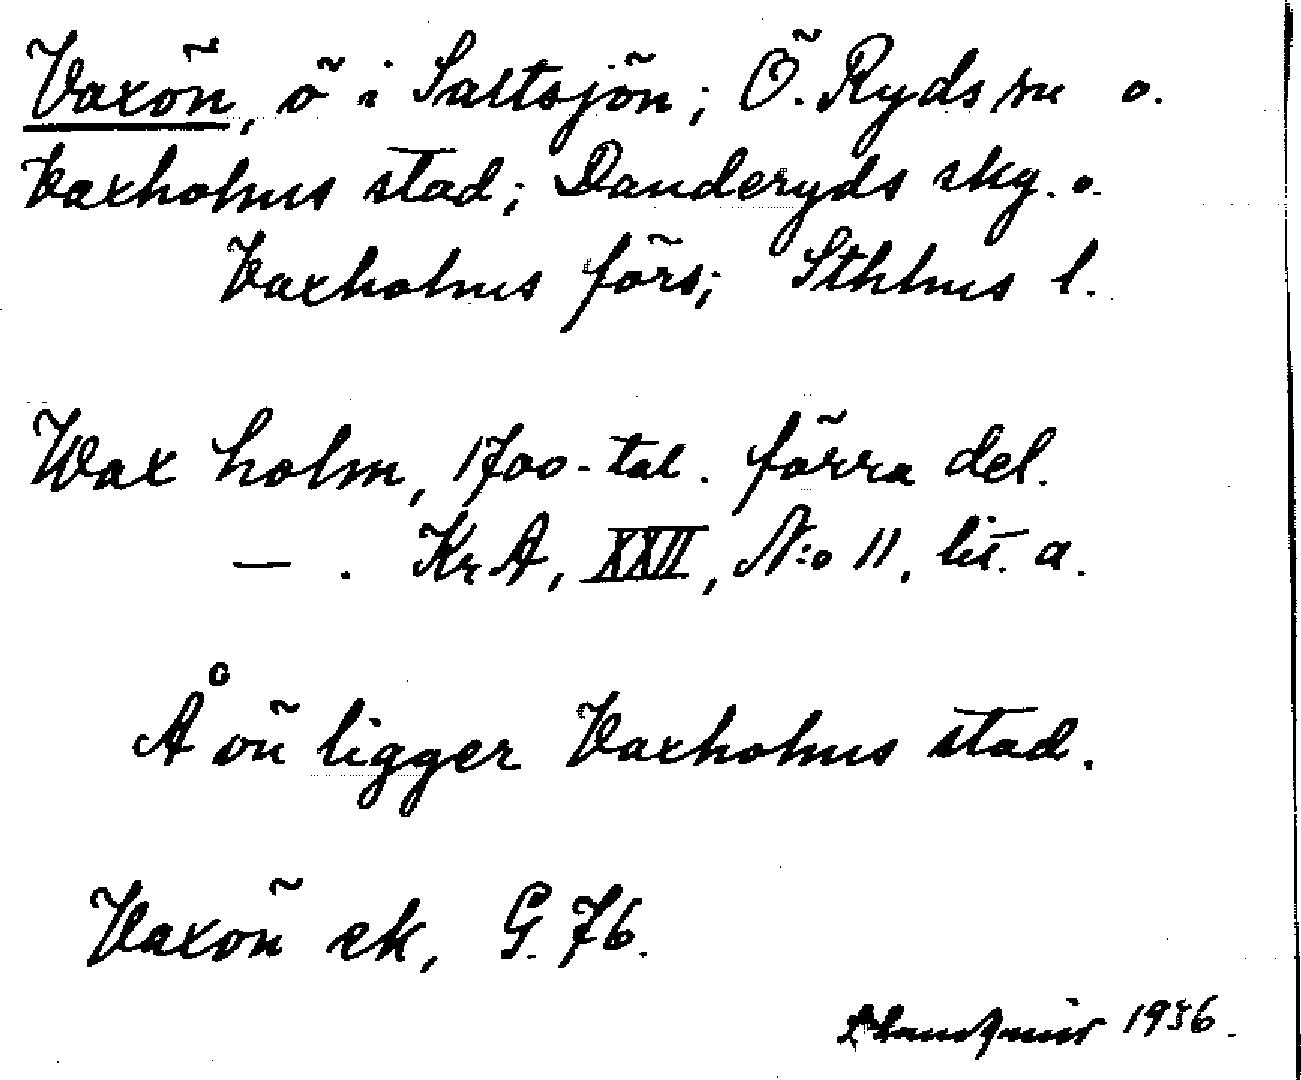 Vaxön, ö i Saltsjön; Ö. Ryds sn o.
Vaxholms stad; Danderyds skg. o.
Vaxholms förs; Sthlms l.
Wax holm, 1700-tal. förra del.
— . KrA, XXII, N:o 11, lit. a.
Å ön ligger Vaxholms stad.
Vaxön ek, G. 76.
1936.